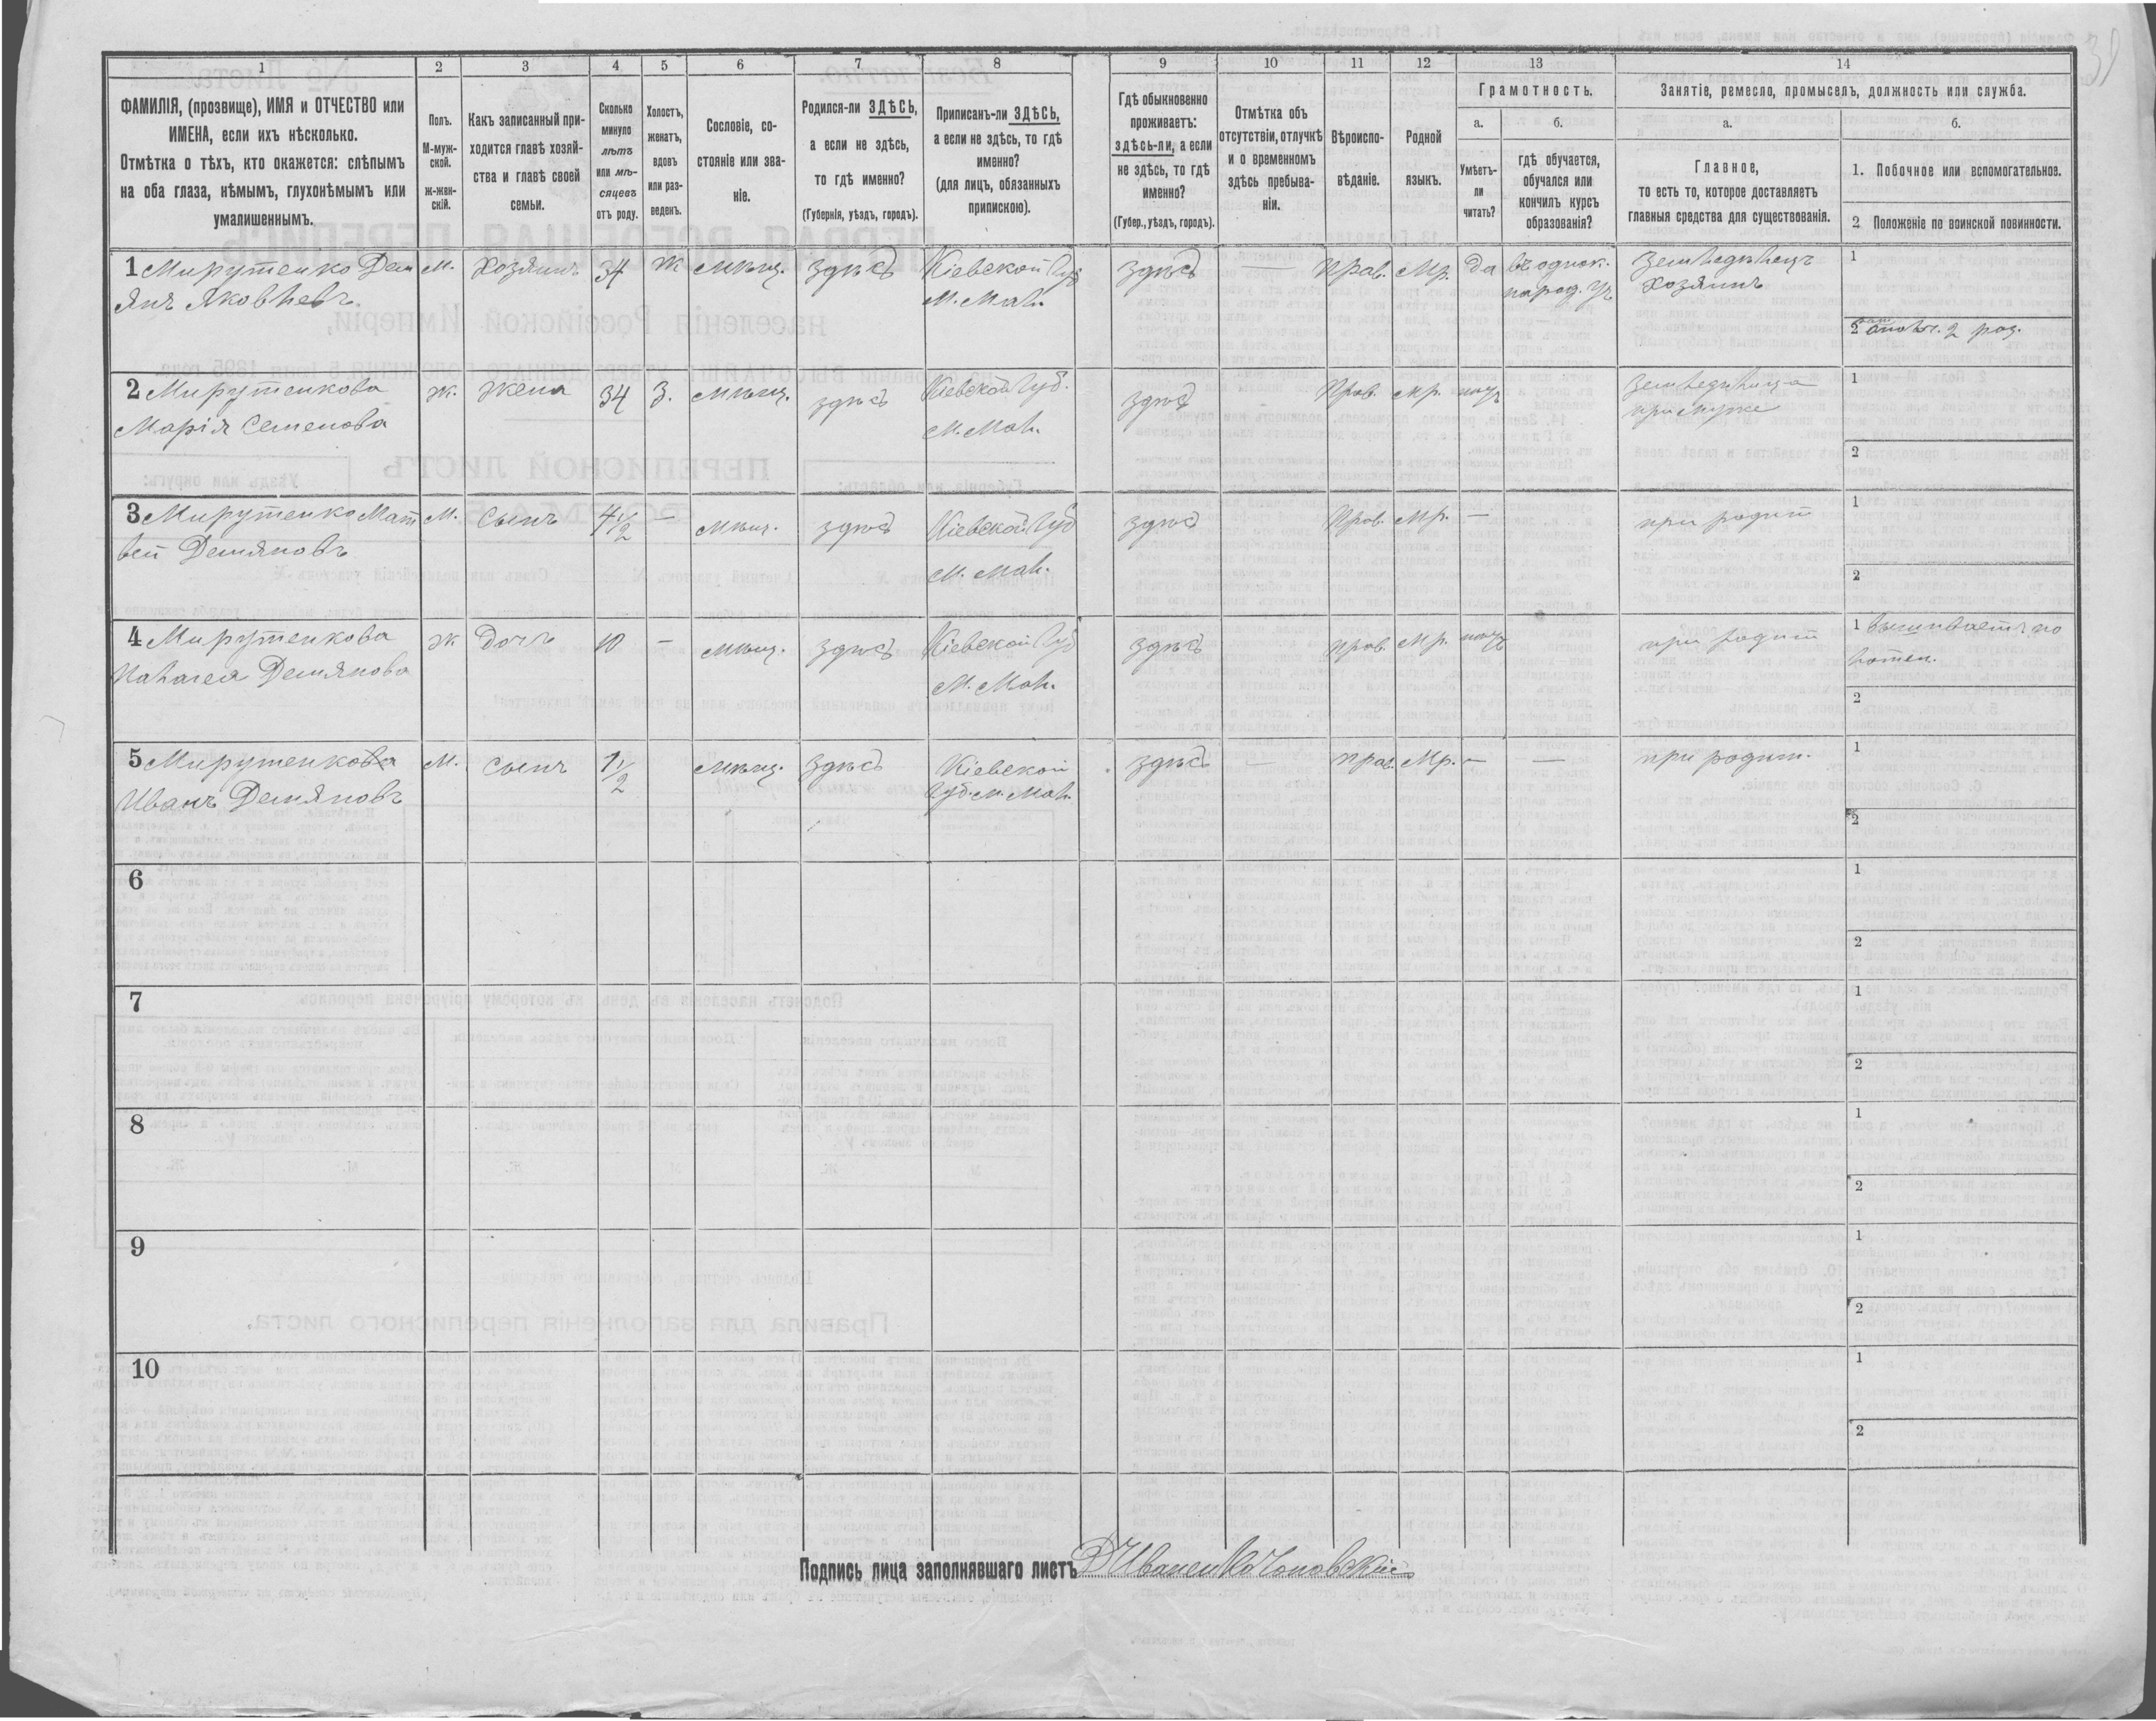 31
1
2
3
4
5
6
7
8
9
10
11
12
13
14
ФАМИЛІЯ, (прозвище), ИМЯ и ОТЧЕСТВО или
ИМЕНА, если ихъ нѣсколько.
Отмѣтка о тѣхъ, кто окажется: слѣпымъ
на оба глаза, нѣмымъ, глухонѣмымъ или
умалишеннымъ.
Полъ.
М-муж-
ской.
ж-жен-
скій.
Какъ записанный при-
ходится главѣ хозяй-
ства и главѣ своей
семьи.
Сколько
минуло
лѣтъ
или мѣ-
сяцевъ
отъ роду.
Холостъ,
женатъ,
вдовъ
или раз-
веденъ.
Сословіе, со-
стояніе или зва-
ніе.
Родился-ли ЗДѢСЬ,
а если не здѣсь,
то гдѣ именно?
(Губернія, уѣздъ, городъ).
Приписанъ-ли ЗДѢСЬ,
а если не здѣсь, то гдѣ
именно?
(для лицъ, обязанныхъ
припискою).
Гдѣ обыкновенно
проживаетъ:
здѣсь-ли, а если
не здѣсь, то гдѣ
именно?
(Губер., уѣздъ, городъ).
Отмѣтка объ
отсутствіи, отлучкѣ
и о временномъ
здѣсь пребыва-
ніи.
Вѣроиспо-
вѣданіе.
Родной
языкъ.
Грамотность.
а.
Умѣетъ-
ли
читать?
б.
гдѣ обучается,
обучался или
кончилъ курсъ
образованія?
Занятіе, ремесло, промыселъ, должность или служба.
а.
Главное,
то есть то, которое доставляетъ
главныя средства для существованія.
б.
1. Побочное или вспомогательное.
2 Положеніе по воинской повинности.
1 Мирутенко Дем
янъ Яковлевъ
М.
Хозяинъ
34
Ж
мѣщ.
здѣсь
Кіевской Губ
м. Мал.
здѣсь
—
прав.
Мр.
да
въ однок.
народ. уч
Земледѣлецъ
Хозяинъ
1
2 ополч. 2 раз.
2 Мирутенкова
Марія Семенова
ж.
Жена
34
З.
мѣщ.
здѣсь
Кіевской Губ.
м. Мал.
здѣсь
Прав.
мр.
Земледѣлица
при мужѣ
1
2
3 Мирутенко Мат
вей Демяновъ
М.
Сынъ
4 1/2
—
мѣщ.
здѣсь
Кіевской Губ
м. Мал.
здѣсь
Прав.
Мр.
—
при родит
1
2
4 Мирутенкова
Палагея Демянова
ж
Дочь
10
—
мѣщ.
здѣсь
Кіевской Губ
м. Мал.
здѣсь
прав.
Мр.
при родит
1 вышиваетъ по
лотен.
2
5 Мирутенкова
Иванъ Демяновъ
М.
Сынъ
1 1/2
мѣщ.
здѣсь
Кіевской
Губ. м. Мал.
здѣсь
—
прав.
Мр.
—
—
при родит.
1
2
6
1
2
7
1
2
8
1
2
9
1
2
10
1
2
Подпись лица заполнявшаго листъ